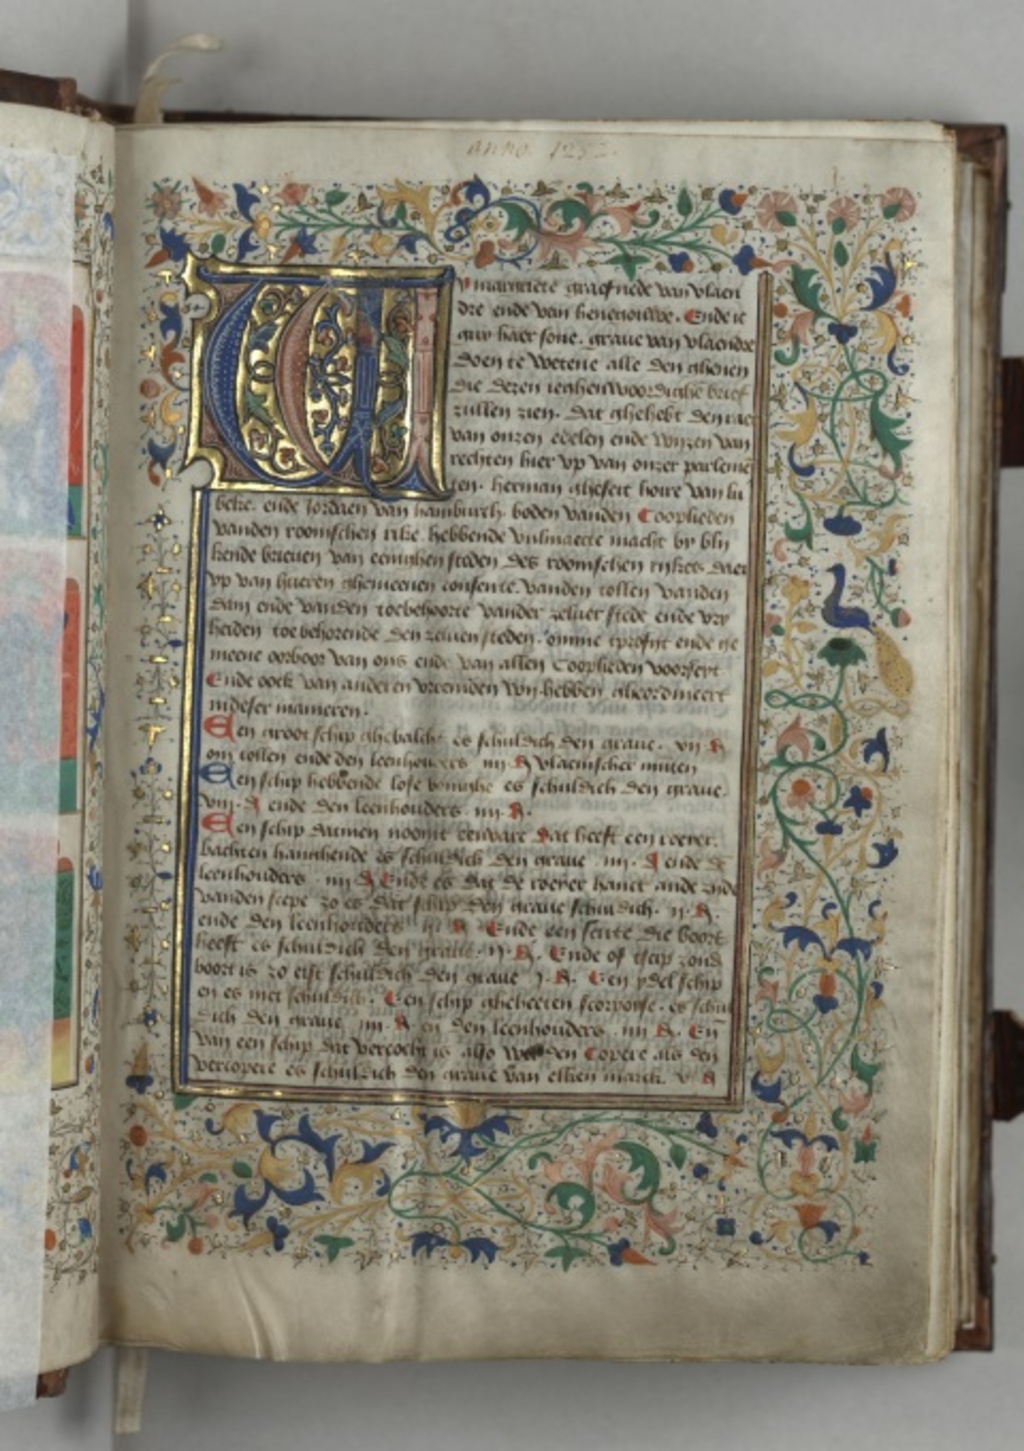 ANNO. 1252.
W y margriete graefnede van vlaen
dre ende van henegouwe. Ende ic
guy haer sone. graue van vlaendre
doen te wetene alle den ghenen
die dezen ieghenwoordighe brief
zullen zien. dat ghehebt den rae
van onzen edelen ende wyzen van
rechten hier vp van onzer parleme
ten. herman gheseit hoire van lu
beke. ende Jordaen van hamburch. boden vanden Cooplieden
vanden roomschen rike. hebbende vulmaecte macht by blij
kende brieuen van eenighen steden des roomschen rijkes daer
vp van hueren ghemeenen consente. vanden tollen vanden
dam ende vanden toebehoorte vander zeluer stede ende vry
heiden toebehorende den zeluen steden. omme tprofijt ende ghe
meene oorboor van ons ende van allen Cooplieden voorseyt
Ende oock van anderen vremden wy hebben gheordineert
in deser manieren.
Een groot schip ghebalct es schuldich den graue. vij. d
om tollen ende den leenhouders. iiij. d vlaemscher muten
Een schip hebbende lose es schuldich den graue
viij. d ende den leenhouders. iiij. d.
Een schip datmen noomt dat heeft een roeyer
bachten hanghende es schuldich den graue. iiij. d ende de
leenhouders. iiij d Ende es dat de roeyer hanct ande zyde
vanden scepe zo es dat schip den graue schuldich. ij. d.
ende den leenhouders ij. d. Ende een scute die boort
heeft es schuldich den graue. ij. d. Ende of tscip zond
boort is zo eist schuldich den graue j. d. Een ydel schip
en es niet schuldich. Een schip gheheeten scorpoise. es schul
dich den graue iiij. d en den leenhouders. iiij d. En
van een schip dat vercocht is also wel den Copere als den
vercopere es schuldich den graue van elken marck. v. d